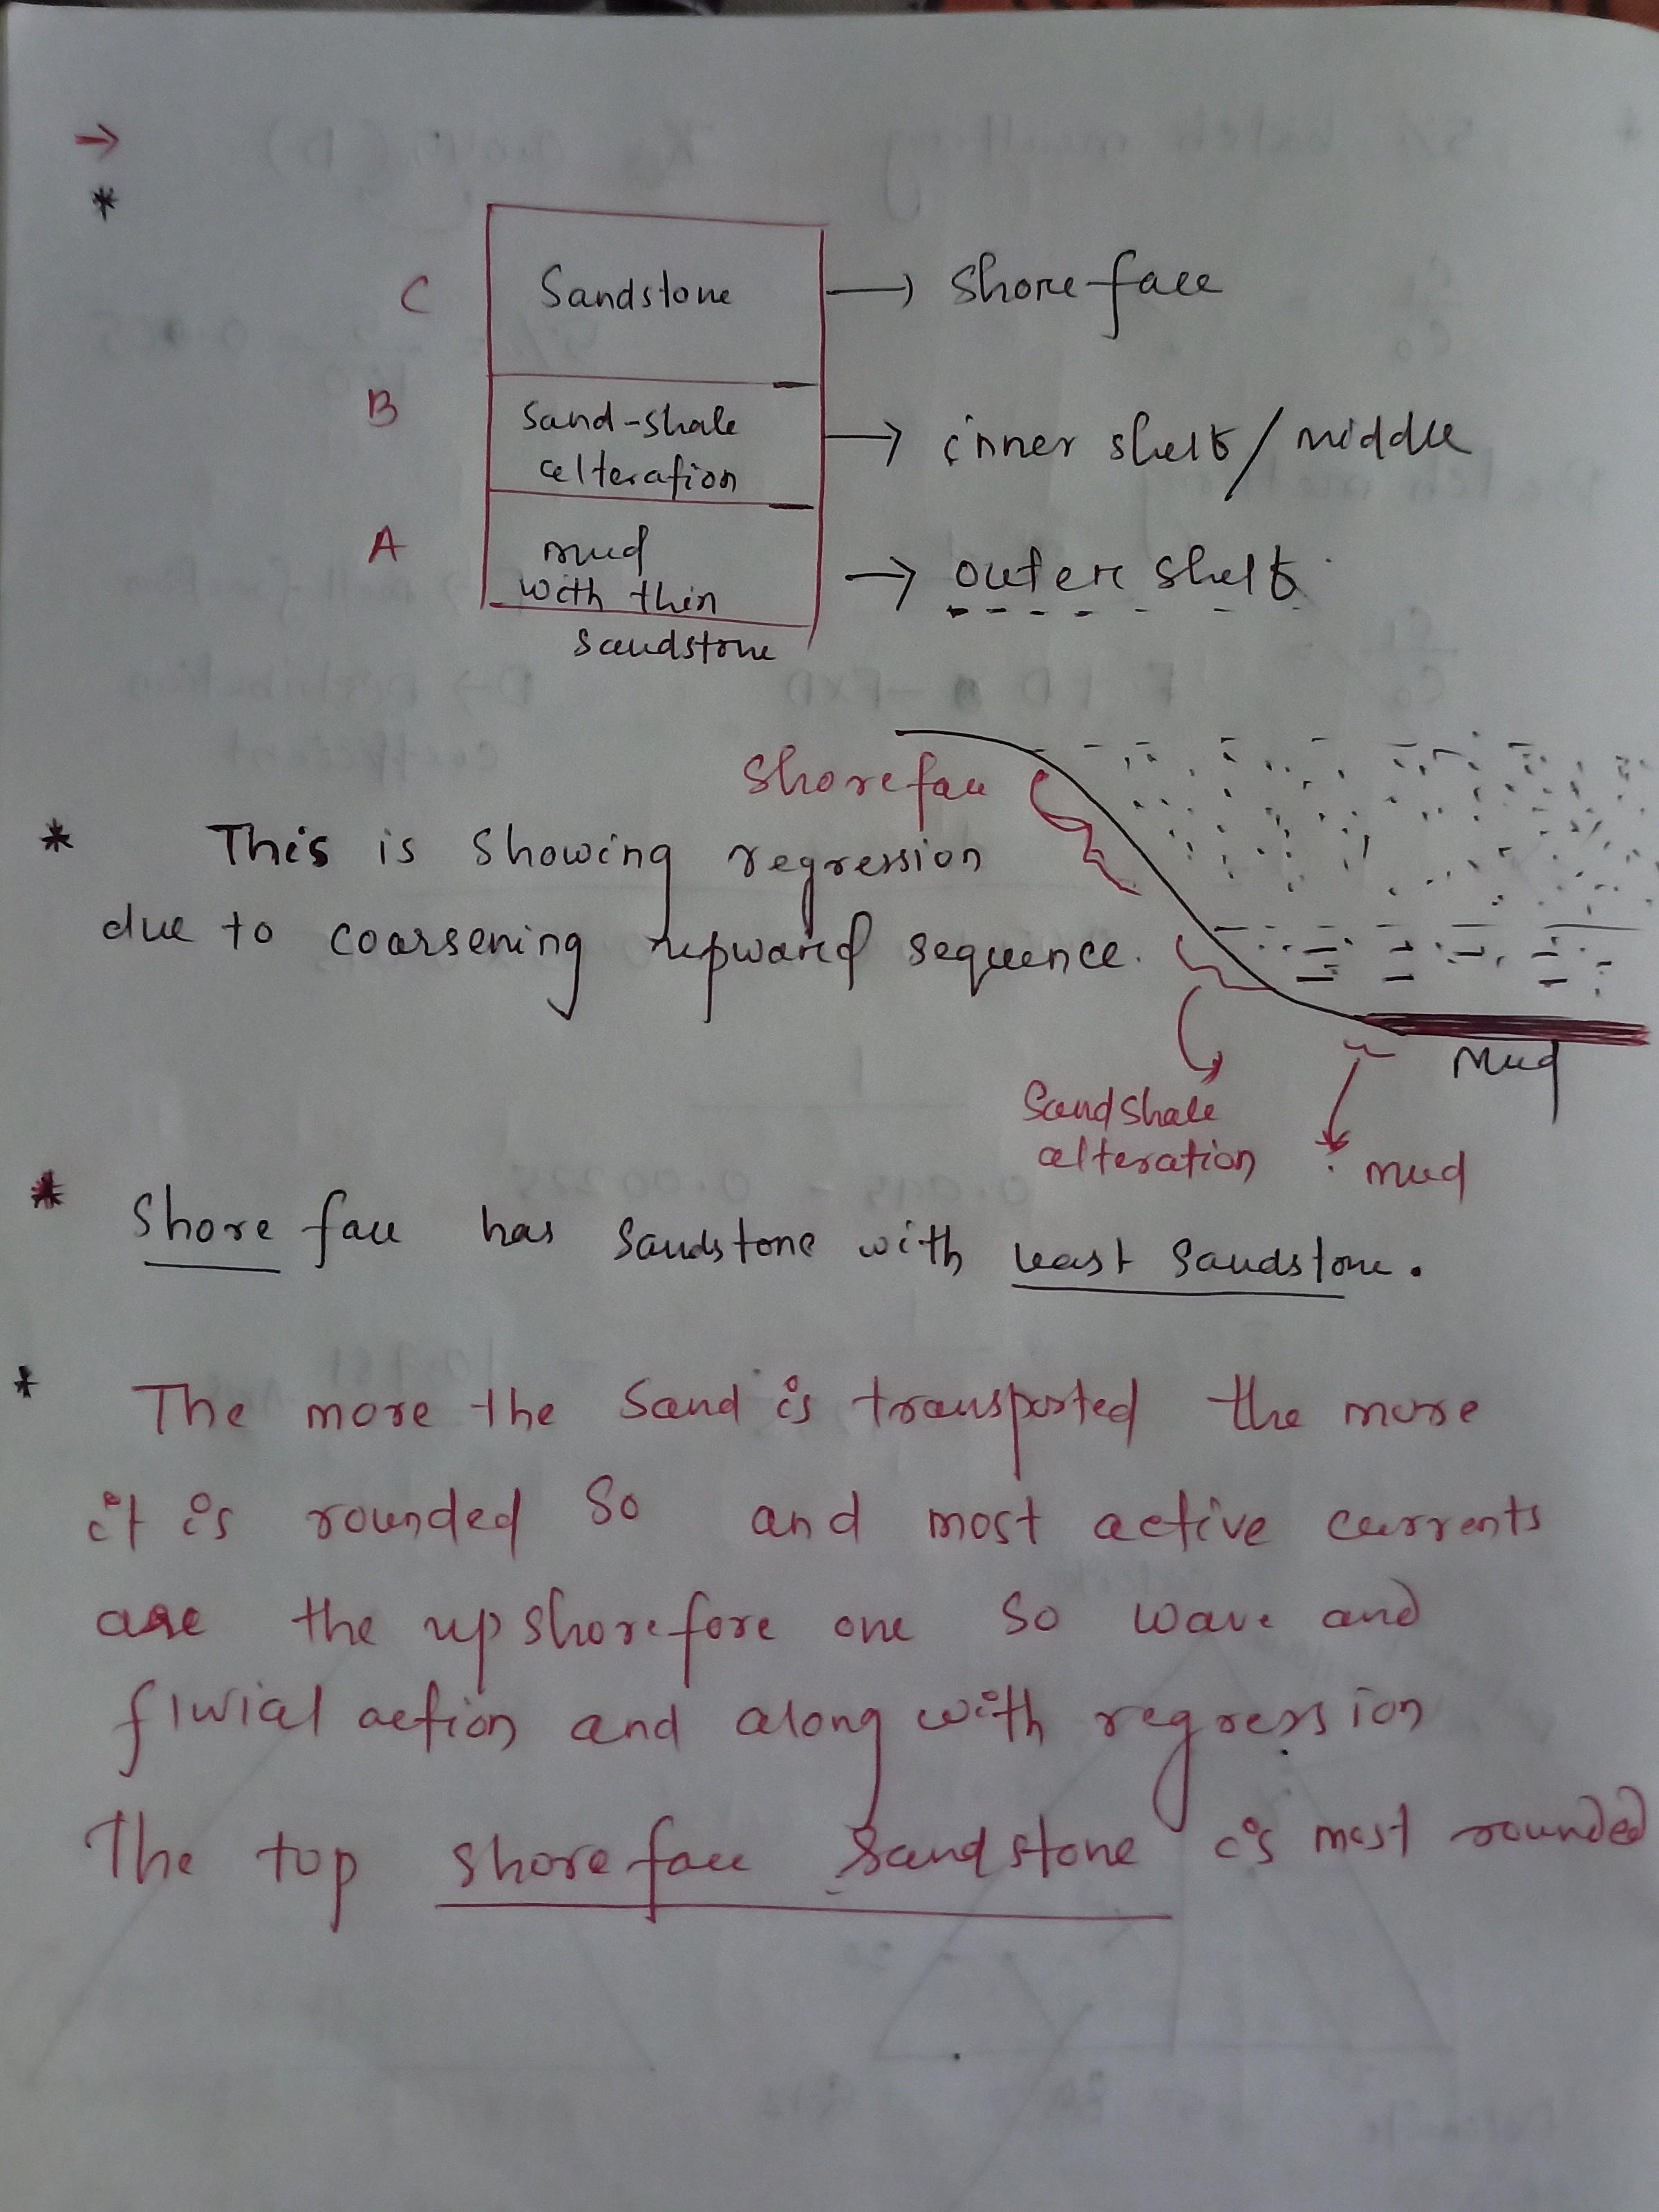 →
*
C Sandstone → Shoreface
B Sand-shale → inner shelf/middle
alteration
A mud → outer shelf
with thin
Sandstone
Shoreface
* This is showing regression
due to coarsening upward sequence.
Mud
Sandshale
alteration mud
* Shore face has Sandstone with least Sandstone.
* The more the Sand is transported the more
it is rounded So and most active currents
are the upshorefore one So wave and
fluvial action and along with regression
The top shoreface Sandstone is most rounded